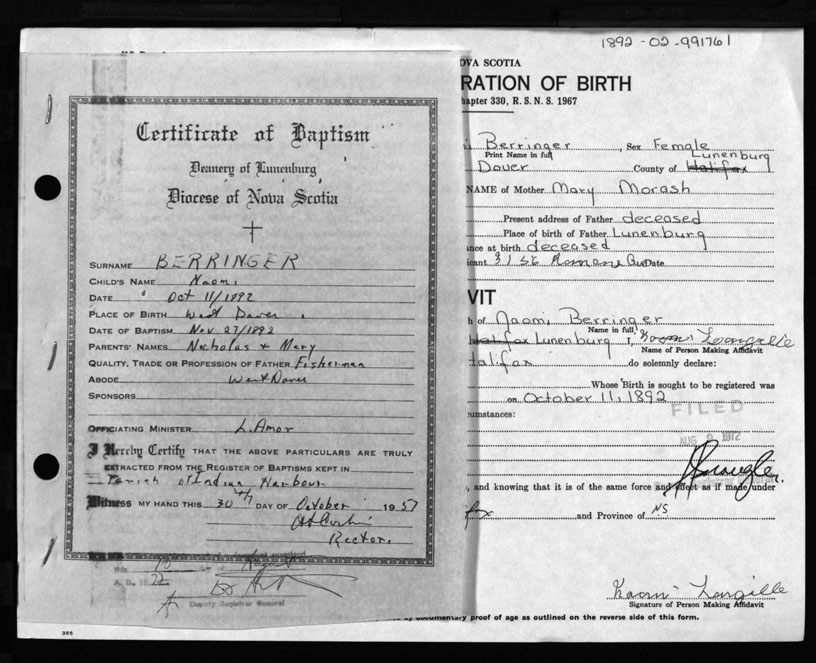 1892-02-991761
OVA SCOTIA
RATION OF BIRTH
hapter 330, R. S. N. S. 1967
Berringer, Sex Female
Print Name in full
Lunenburg
Dover County of Halifax
NAME of Mother Mary Morash
Present address of Father deceased
Place of birth of Father Lunenburg
nce at birth deceased
icant Date
VIT
h of Naomi Berringer
Name in full
Halifax Lunenburg I, Naomi Langille
Name of Person Making Affidavit
Halifax do solemnly declare:
Whose Birth is sought to be registered was
on October 11, 1892
umstances:
FILED
AUG 1972
, and knowing that it is of the same force and effect as if made under
fax and Province of NS
Naomi Langille
Signature of Person Making Affidavit
documentary proof of age as outlined on the reverse side of this form.
Certificate of Baptism
Deanery of Lunenburg
Diocese of Nova Scotia
SURNAME BERRINGER
CHILD'S NAME Naomi
DATE Oct 11/1892
PLACE OF BIRTH West Dover
DATE OF BAPTISM Nov 27/1892
PARENTS' NAMES Nicholas + Mary
QUALITY, TRADE OR PROFESSION OF FATHER Fisherman
ABODE West Dover
SPONSORS
OFFICIATING MINISTER L. Amor
I Hereby Certify THAT THE ABOVE PARTICULARS ARE TRULY
EXTRACTED FROM THE REGISTER OF BAPTISMS KEPT IN
Parish of Indian Harbour
Witness MY HAND THIS 30th DAY OF October 1957
Rector.
this 10 day of August
A. D. 1972
Deputy Registrar General
385